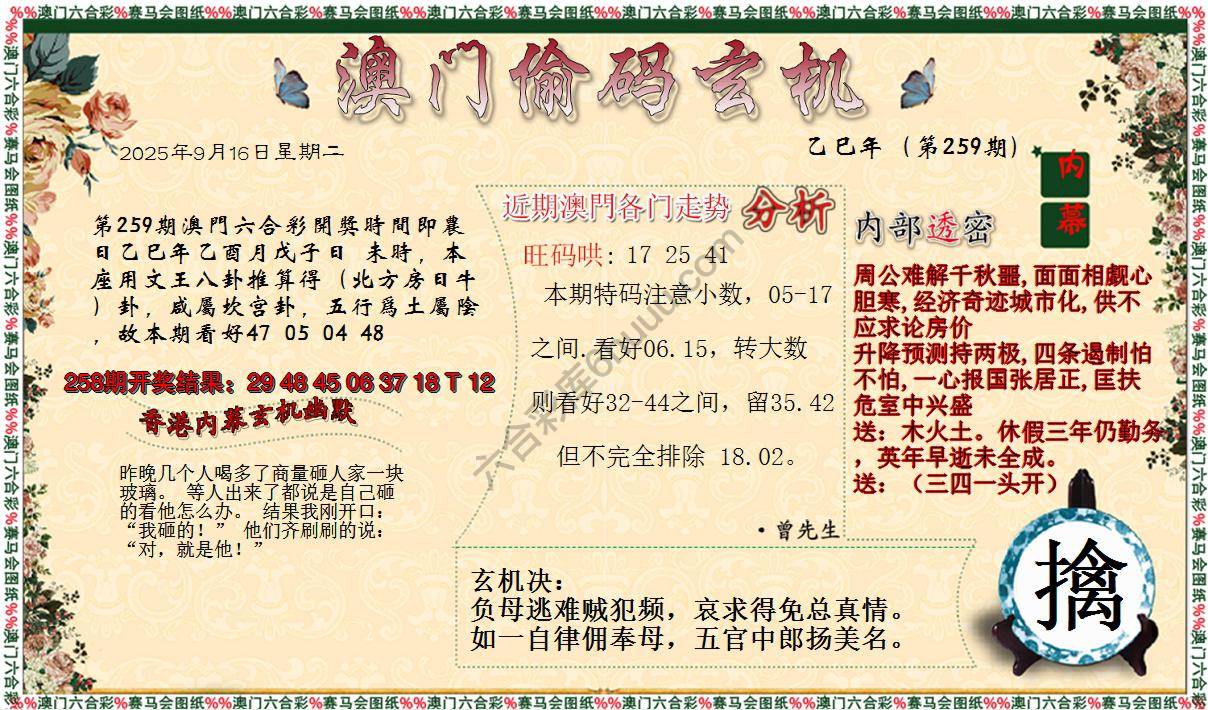 %%澳门六合彩%赛马会图纸%%澳门六合彩%赛马会图纸%%澳门六合彩%赛马会图纸%%澳门六合彩%赛马会图纸%%澳门六合彩%赛马会图纸%%澳门六合彩%赛马会图纸%%
澳门偷码玄机
2025年9月16日星期二
乙巳年（第259期）
内
幕
第259期澳門六合彩開獎時間即農
日乙巳年乙酉月戊子日 未時，本
座用文王八卦推算得（北方房日牛
）卦，咸屬坎宫卦，五行爲土屬陰
，故本期看好47 05 04 48
258期开奖结果：29 48 45 06 37 18 T 12
香港内幕玄机幽默
昨晚几个人喝多了商量砸人家一块
玻璃。 等人出来了都说是自己砸
的看他怎么办。 结果我刚开口：
“我砸的！” 他们齐刷刷的说：
“对，就是他！”
近期澳門各门走势 分析
旺码哄: 17 25 41
本期特码注意小数，05-17
之间.看好06.15，转大数
则看好32-44之间，留35.42
但不完全排除 18.02。
·曾先生
内部透密
周公难解千秋噩,面面相觑心
胆寒,经济奇迹城市化,供不
应求论房价
升降预测持两极,四条遏制怕
不怕,一心报国张居正,匡扶
危室中兴盛
送：木火土。休假三年仍勤务
，英年早逝未全成。
送：（三四一头开）
玄机决：
负母逃难贼犯频，哀求得免总真情。
如一自律佣奉母，五官中郎扬美名。
擒
%%澳门六合彩%赛马会图纸%%澳门六合彩%赛马会图纸%%澳门六合彩%赛马会图纸%%澳门六合彩%赛马会图纸%%澳门六合彩%赛马会图纸%%澳门六合彩%赛马会图纸%%